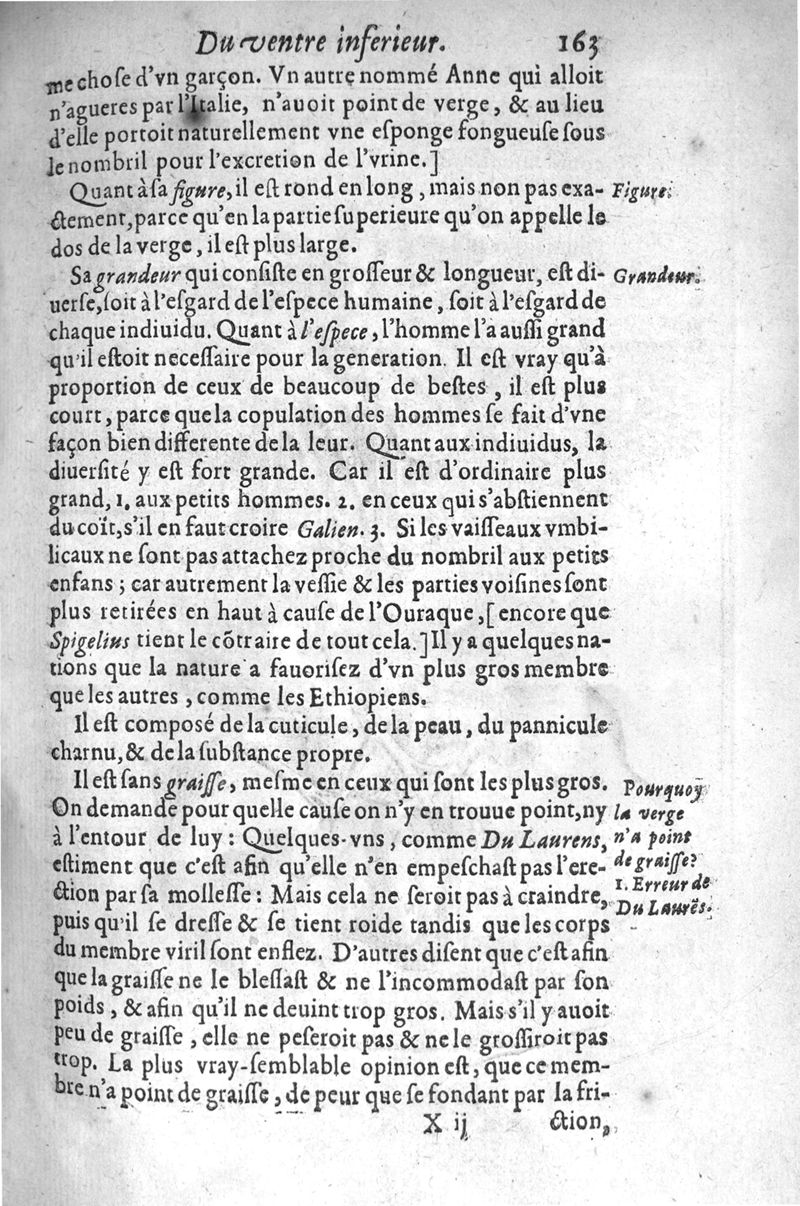 Du ventre inferieur. 163
me choſe d'vn garçon. Vn autre nommé Anne qui alloit
n'agueres par l'Italie, n'auoit point de verge, & au lieu
d'elle portoit naturellement vne eſponge fongueuſe ſous
le nombril pour l'excretion de l'vrine.]
Quant à ſa figure, il eſt rond en long, mais non pas exa-
Figure.
ctement, parce qu'en la partie ſuperieure qu'on appelle le
dos de la verge, il eſt plus large.
Sa grandeur qui conſiſte en groſſeur & longueur, eſt di-
Grandeur.
uerſe, ſoit à l'eſgard de l'eſpece humaine, ſoit à l'eſgard de
chaque indiuidu. Quant à l'eſpece, l'homme l'a auſſi grand
qu'il eſtoit neceſſaire pour la generation. Il eſt vray qu'à
proportion de ceux de beaucoup de beſtes, il eſt plus
court, parce que la copulation des hommes ſe fait d'vne
façon bien differente de la leur. Quant aux indiuidus, la
diuerſité y eſt fort grande. Car il eſt d'ordinaire plus
grand, 1. aux petits hommes. 2. en ceux qui s'abſtiennent
du coït, s'il en faut croire Galien. 3. Si les vaiſſeaux vmbi-
licaux ne ſont pas attachez proche du nombril aux petits
enfans; car autrement la veſſie & les parties voiſines ſont
plus retirées en haut à cauſe de l'Ouraque, [encore que
Spigelius tient le cõtraire de tout cela.] Il y a quelques na-
tions que la nature a fauoriſez d'vn plus gros membre
que les autres, comme les Ethiopiens.
Il eſt compoſé de la cuticule, de la peau, du pannicule
charnu, & de la ſubſtance propre.
Il eſt ſans graiſſe, meſme en ceux qui ſont les plus gros.
Pourquoy
On demande pour quelle cauſe on n'y en trouue point, ny
la verge
à l'entour de luy: Quelques-vns, comme Du Laurens,
n'a point
eſtiment que c'eſt afin qu'elle n'en empeſchaſt pas l'ere-
de graiſſe?
ction par ſa molleſſe: Mais cela ne ſeroit pas à craindre,
1. Erreur de
puis qu'il ſe dreſſe & ſe tient roide tandis que les corps
Du Laurẽs.
du membre viril ſont enflez. D'autres diſent que c'eſt afin
que la graiſſe ne le bleſſaſt & ne l'incommodaſt par ſon
poids, & afin qu'il ne deuint trop gros. Mais s'il y auoit
peu de graiſſe, elle ne peſeroit pas & ne le groſſiroit pas
trop. La plus vray-ſemblable opinion eſt, que ce mem-
bre n'a point de graiſſe, de peur que ſe fondant par la fri-
X ij ction,